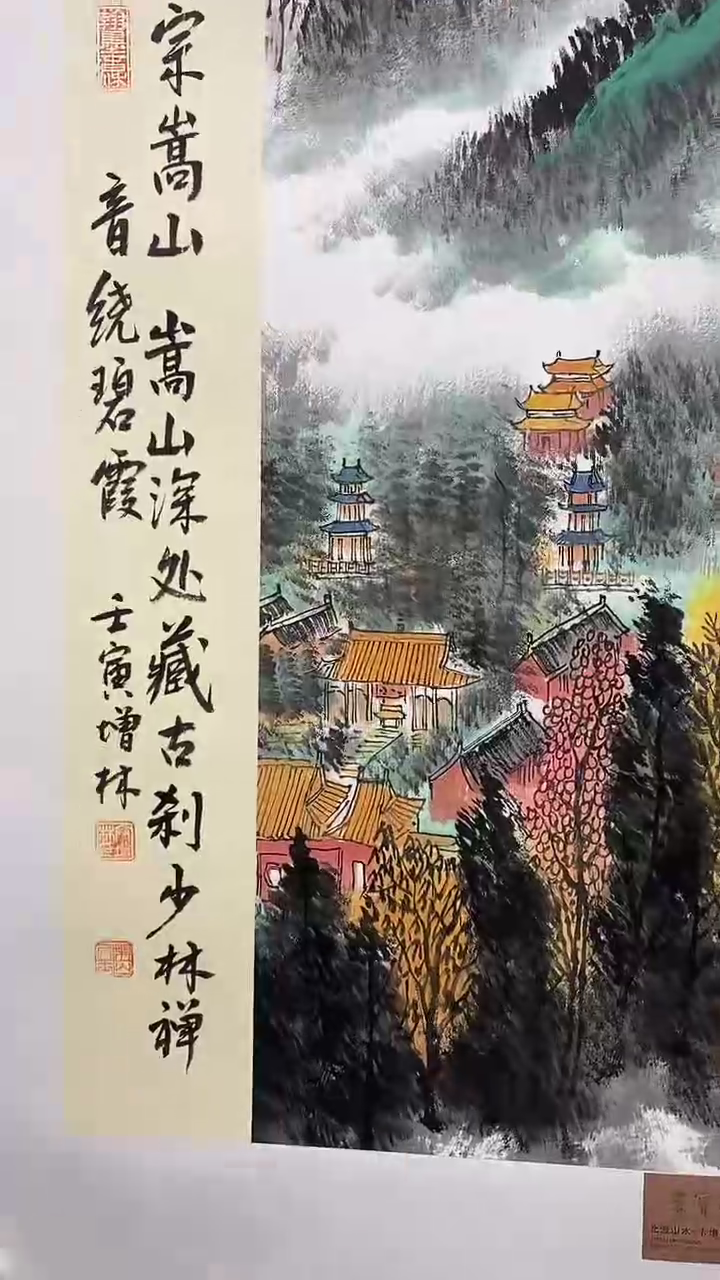 宗嵩山 嵩山深处藏古刹少林禅
音绕碧霞 壬寅增林